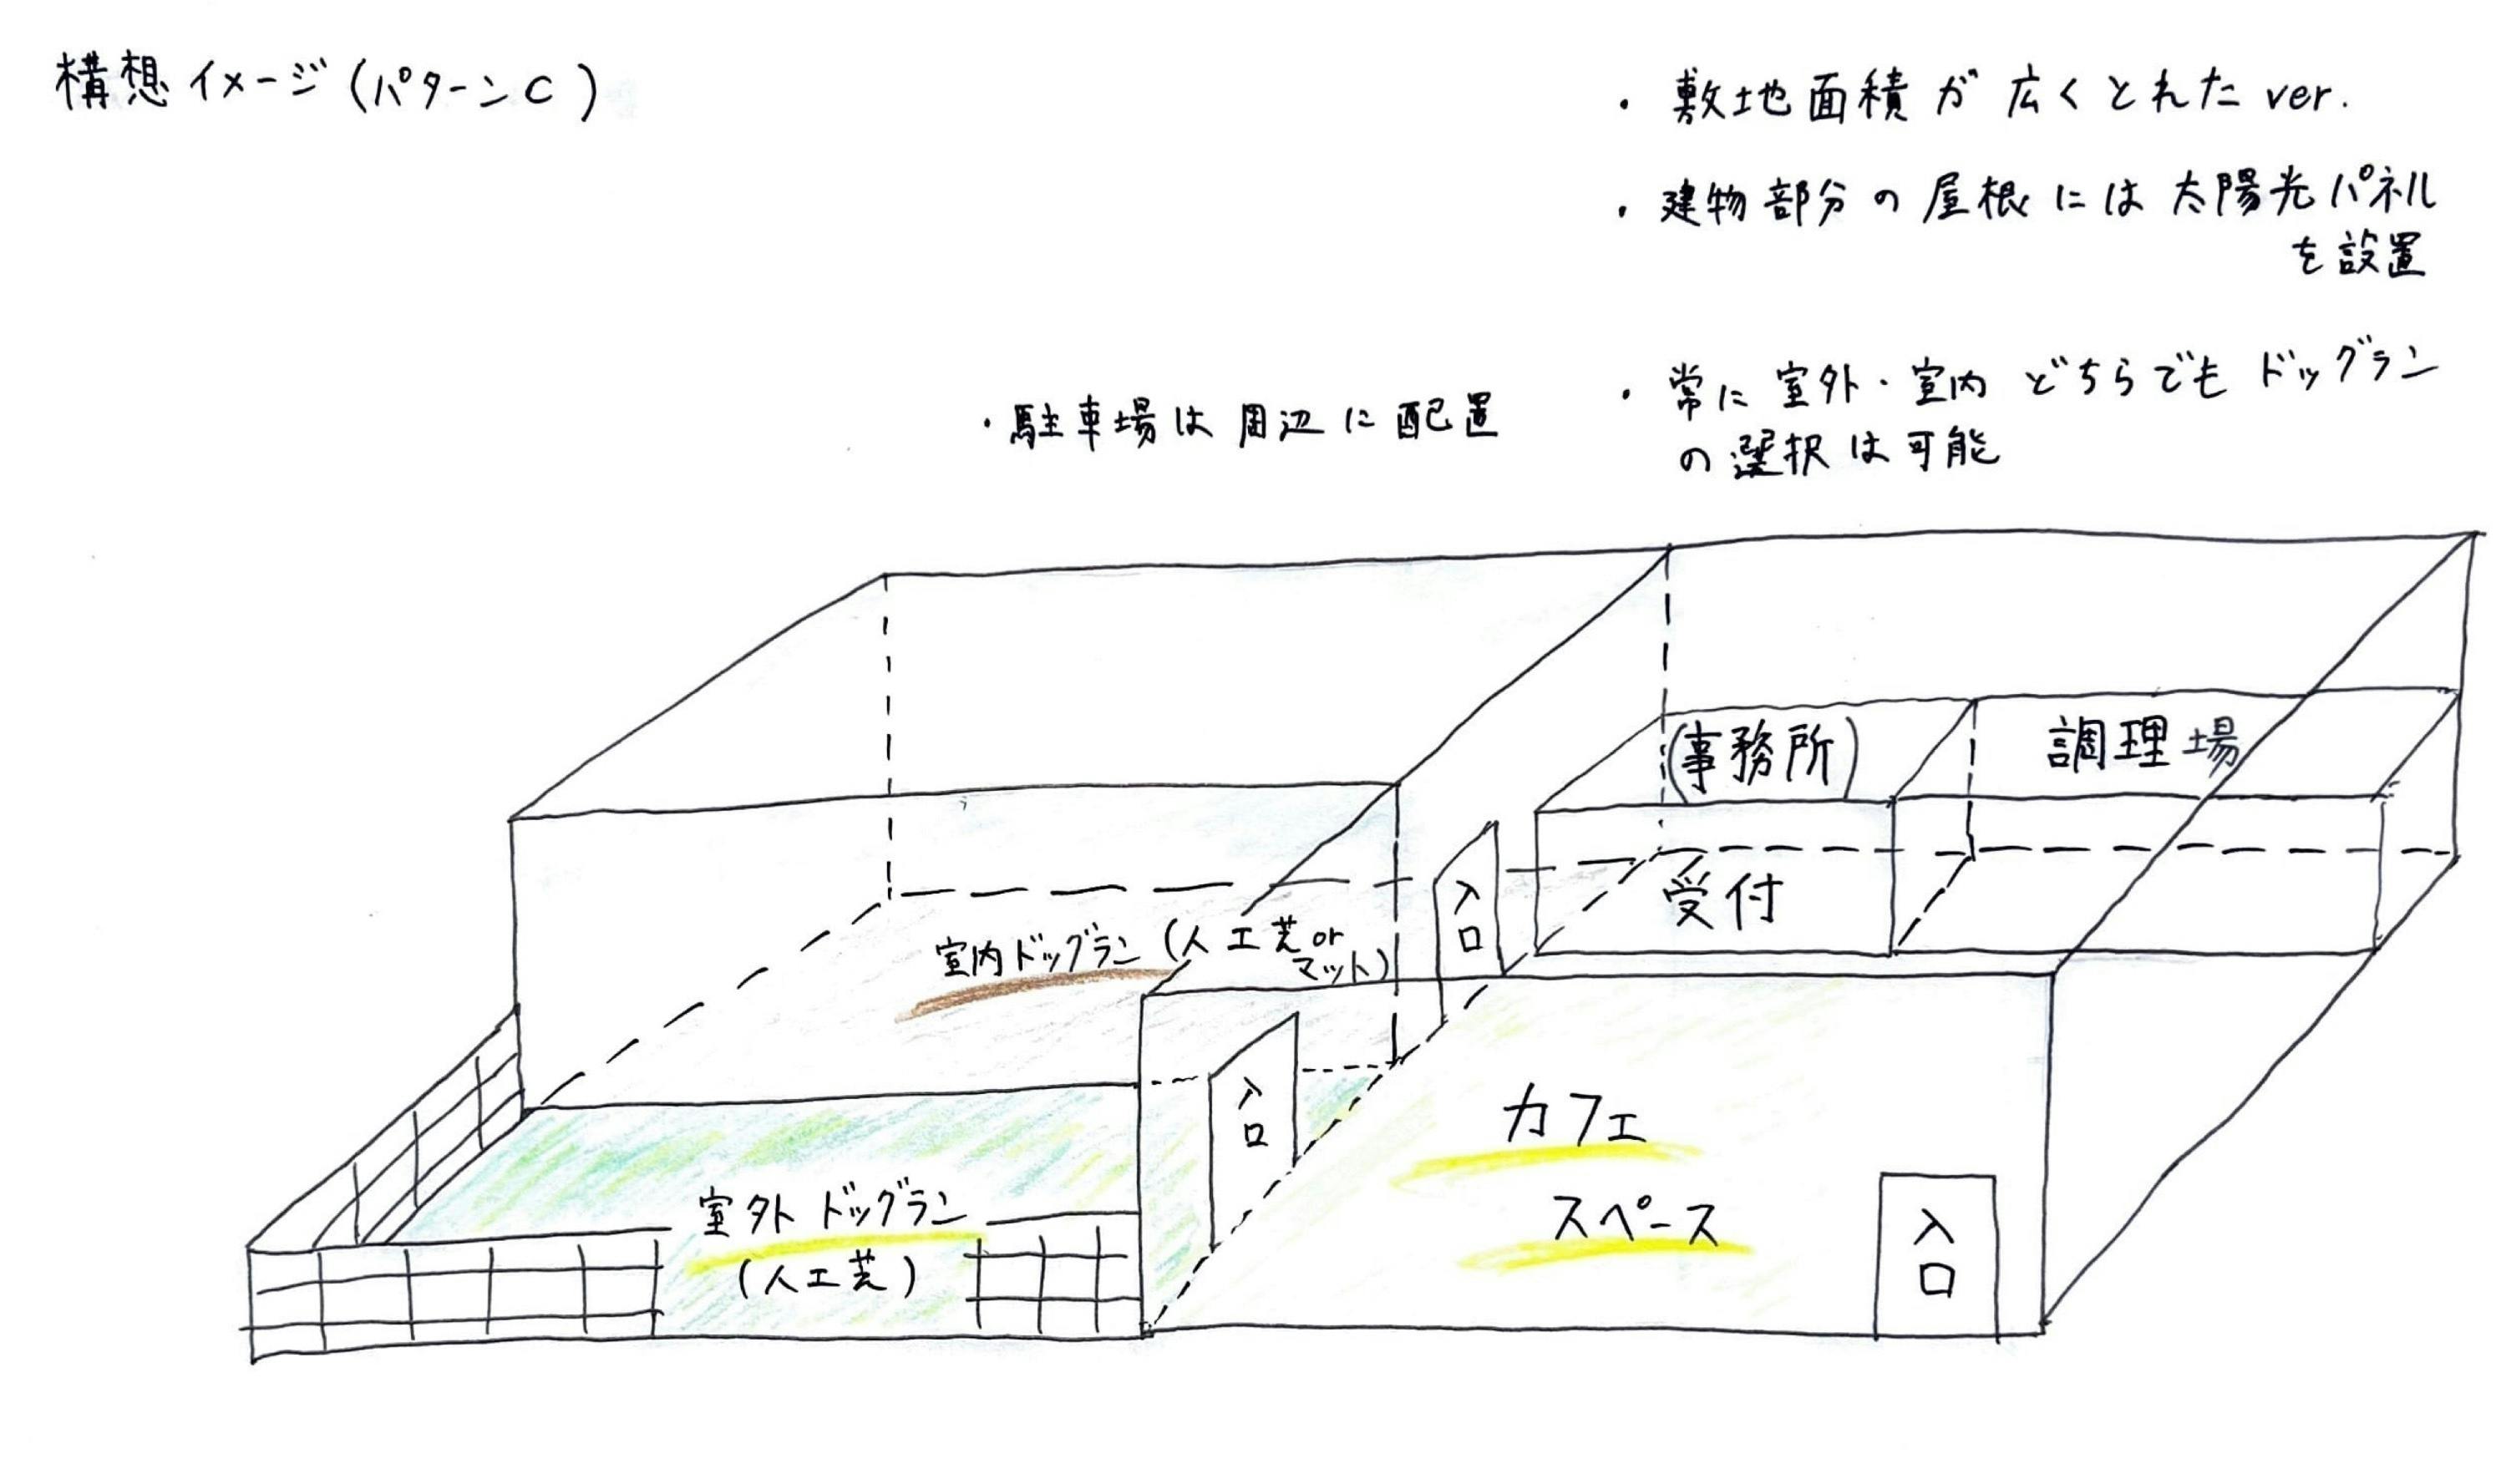 構想イメージ(パターンC)
・敷地面積が広くとれたver.
・建物部分の屋根には太陽光パネル
を設置
・駐車場は周辺に配置
・常に室外・室内どちらでもドッグラン
の選択は可能
(事務所)
調理場
受付
入口
室内ドッグラン(人工芝or
マット)
入口
カフェ
スペース
室外ドッグラン
(人工芝)
入口